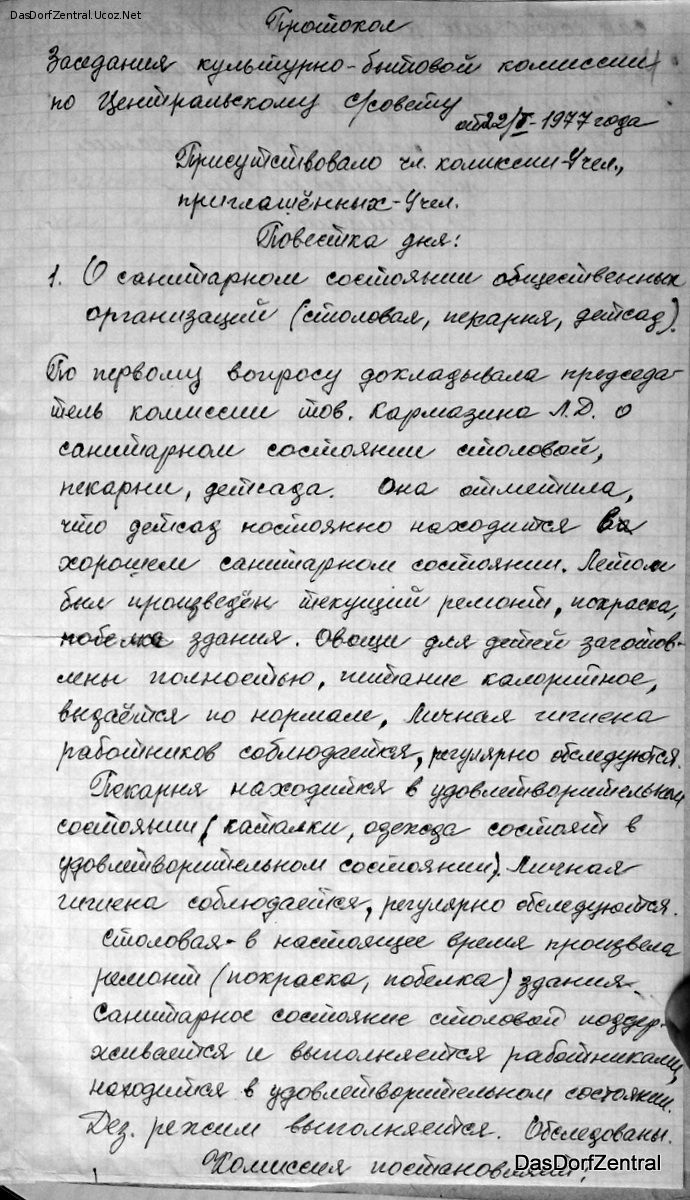 DasDorfZentral.Ucoz.Net
Протокол
Заседания культурно-бытовой комиссии
по Центральскому с/совету
от 22/X-1977 года
Присутствовало чл. комиссии-4чел.,
приглашённых-4чел.
Повестка дня:
1. О санитарном состоянии общественных
организаций (столовая, пекарня, детсад).
По первому вопросу докладывала председа-
тель комиссии тов. Кармазина Л.Д. о
санитарном состоянии столовой,
пекарни, детсада. Она отметила,
что детсад постоянно находится в
хорошем санитарном состоянии. Летом
был произведён текущий ремонт, покраска,
побелка здания. Овощи для детей заготов-
лены полностью, питание калорийное,
выдаётся по нормам, Личная гигиена
работников соблюдается, регулярно обследуются.
Пекарня находится в удовлетворительном
состоянии (каталки, одежда состоят в
удовлетворительном состоянии). Личная
гигиена соблюдается, регулярно обследуются.
Столовая - в настоящее время произвела
ремонт (покраска, побелка) здания.
Санитарное состояние столовой поддер-
живается и выполняется работниками,
находится в удовлетворительном состоянии.
Дез. режим выполняется. Обследованы.
Комиссия
DasDorfZentral